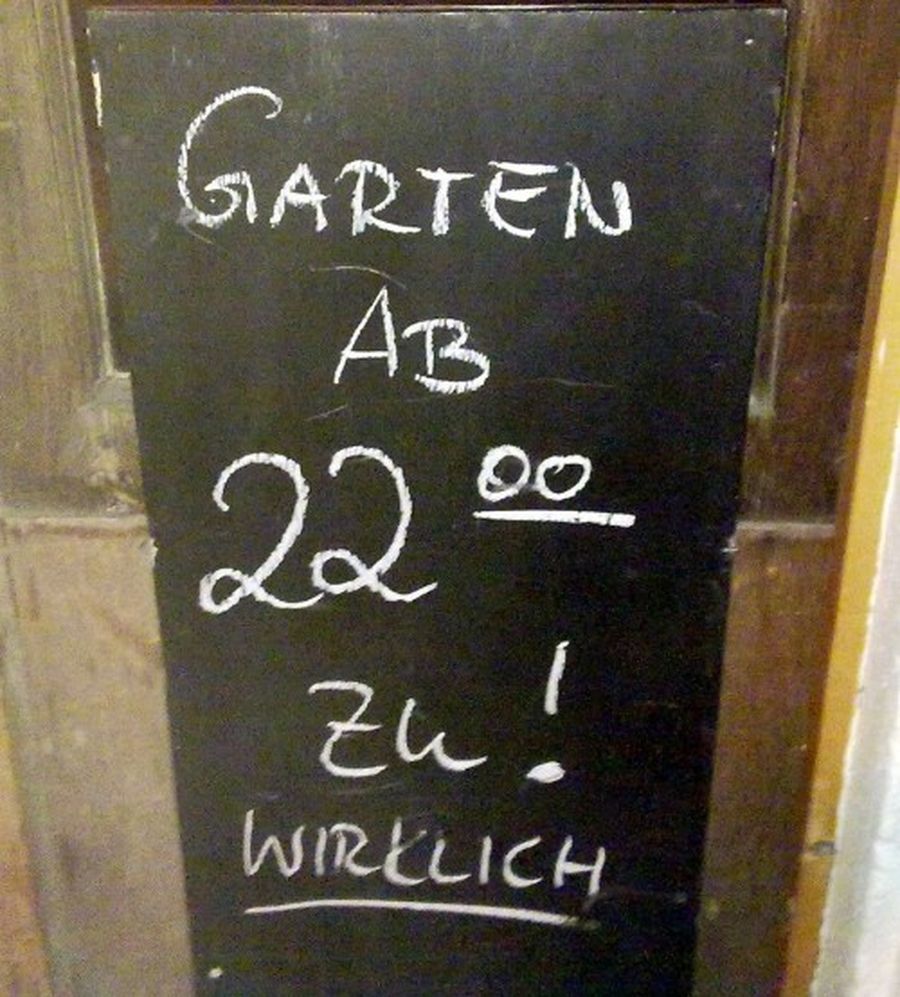 GARTEN
AB
22 00
ZU!
WIRKLICH